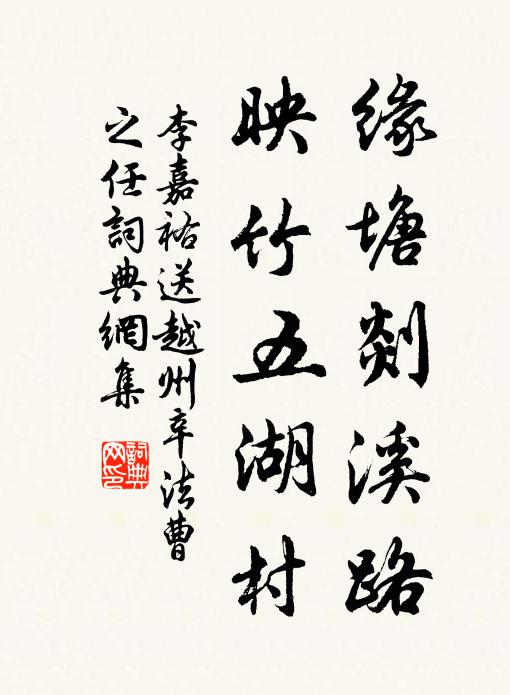 緣塘剡溪路
映竹五湖村
李嘉祐送越州辛法曹
之任詞典網集
詞典
网印